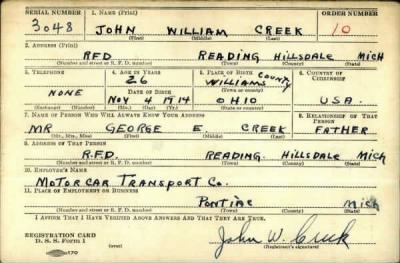 SERIAL NUMBER 1. NAME (Print) ORDER NUMBER
3048 JOHN WILLIAM CREEK 10
(First) (Middle) (Last)
2. ADDRESS (Print)
RFD READING HILLSDALE MICH
(Number and street or R. F. D. number) (Town) (County) (State)
3. TELEPHONE 4. AGE IN YEARS 5. PLACE OF BIRTH 6. COUNTRY OF CITIZENSHIP
26 WILLIAMS COUNTY
DATE OF BIRTH (Town or county)
NONE NOV 4 1914 OHIO USA.
(Exchange) (Number) (Mo.) (Day) (Yr.) (State or country)
7. NAME OF PERSON WHO WILL ALWAYS KNOW YOUR ADDRESS 8. RELATIONSHIP OF THAT PERSON
MR GEORGE E CREEK FATHER
(Mr., Mrs., Miss) (First) (Middle) (Last)
9. ADDRESS OF THAT PERSON
R.F.D. READING. HILLSDALE MICH
(Number and street or R. F. D. number) (Town) (County) (State)
10. EMPLOYER'S NAME
MOTOR CAR TRANSPORT CO.
11. PLACE OF EMPLOYMENT OR BUSINESS
PONTIAC MICH
(Number and street or R. F. D. number) (Town) (County) (State)
I AFFIRM THAT I HAVE VERIFIED ABOVE ANSWERS AND THAT THEY ARE TRUE.
REGISTRATION CARD
D. S. S. Form 1 John W. Creek
(Registrant's signature)